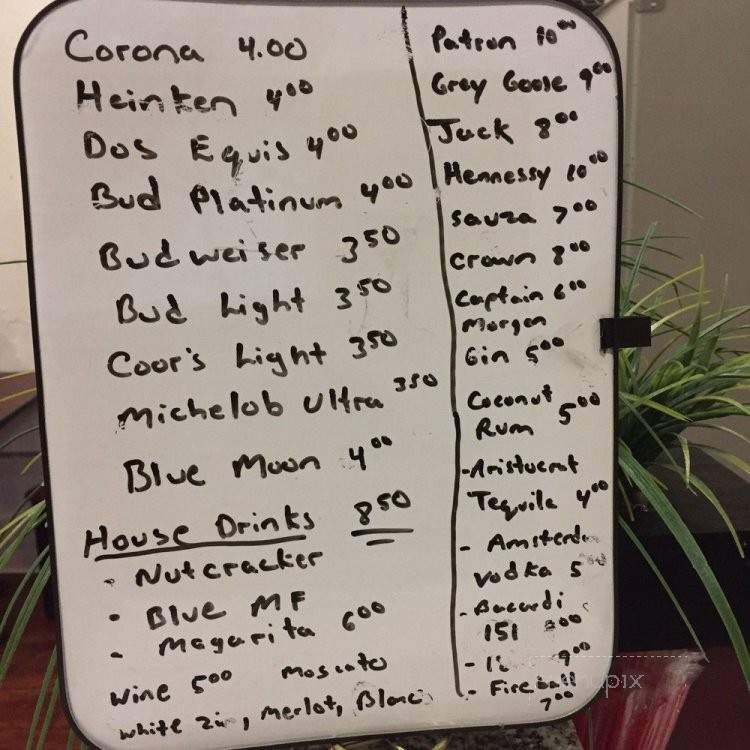 Corona 4.00
Heinken 4⁰⁰
Dos Equis 4⁰⁰
Bud Platinum 4⁰⁰
Budweiser 3⁵⁰
Bud Light 3⁵⁰
Coor's Light 3⁵⁰
Michelob Ultra 3⁵⁰
Blue Moon 4⁰⁰
House Drinks 8⁵⁰
- Nutcracker
- Blue MF
- Magarita 6⁰⁰
Wine 5⁰⁰ Moscato
White Zin, Merlot, Blanc
Patron 10⁰⁰
Grey Goose 9⁰⁰
Jack 8⁰⁰
Hennessy 10⁰⁰
Sauza 7⁰⁰
Crown 8⁰⁰
Captain 6⁰⁰
Morgan
Gin 5⁰⁰
Coconut
Rum 5⁰⁰
-Aristocrat
Tequila 4⁰⁰
- Amsterd
Vodka 5
- Bacardi
151
- 9⁰⁰
- Fireball
7⁰⁰